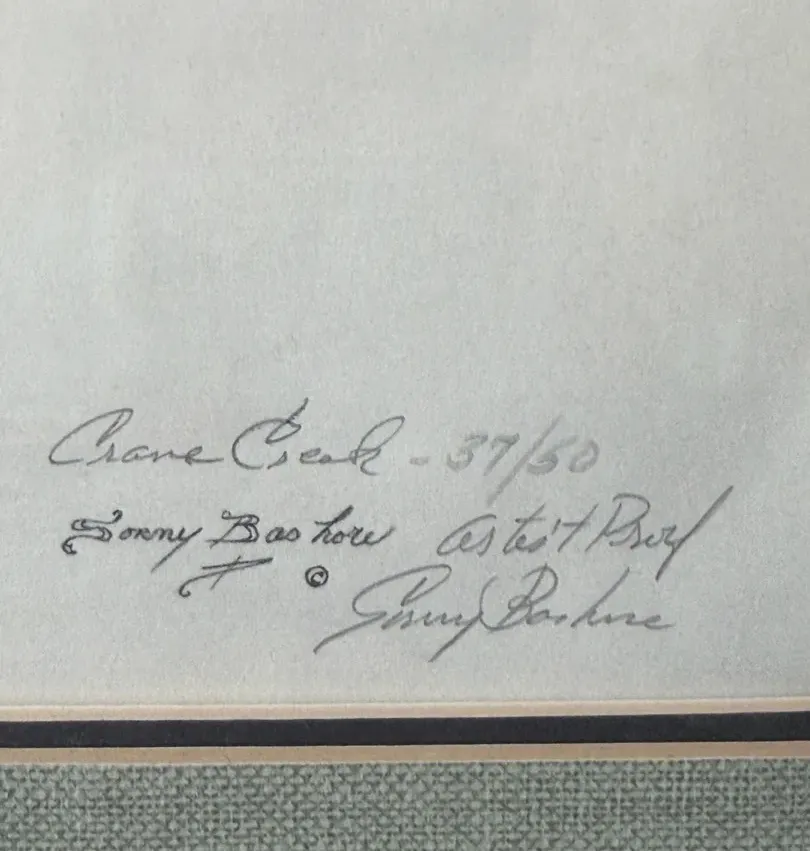 Crane Creek - 37/50
Sonny Bashore Artist Proof
©
Sonny Bashore